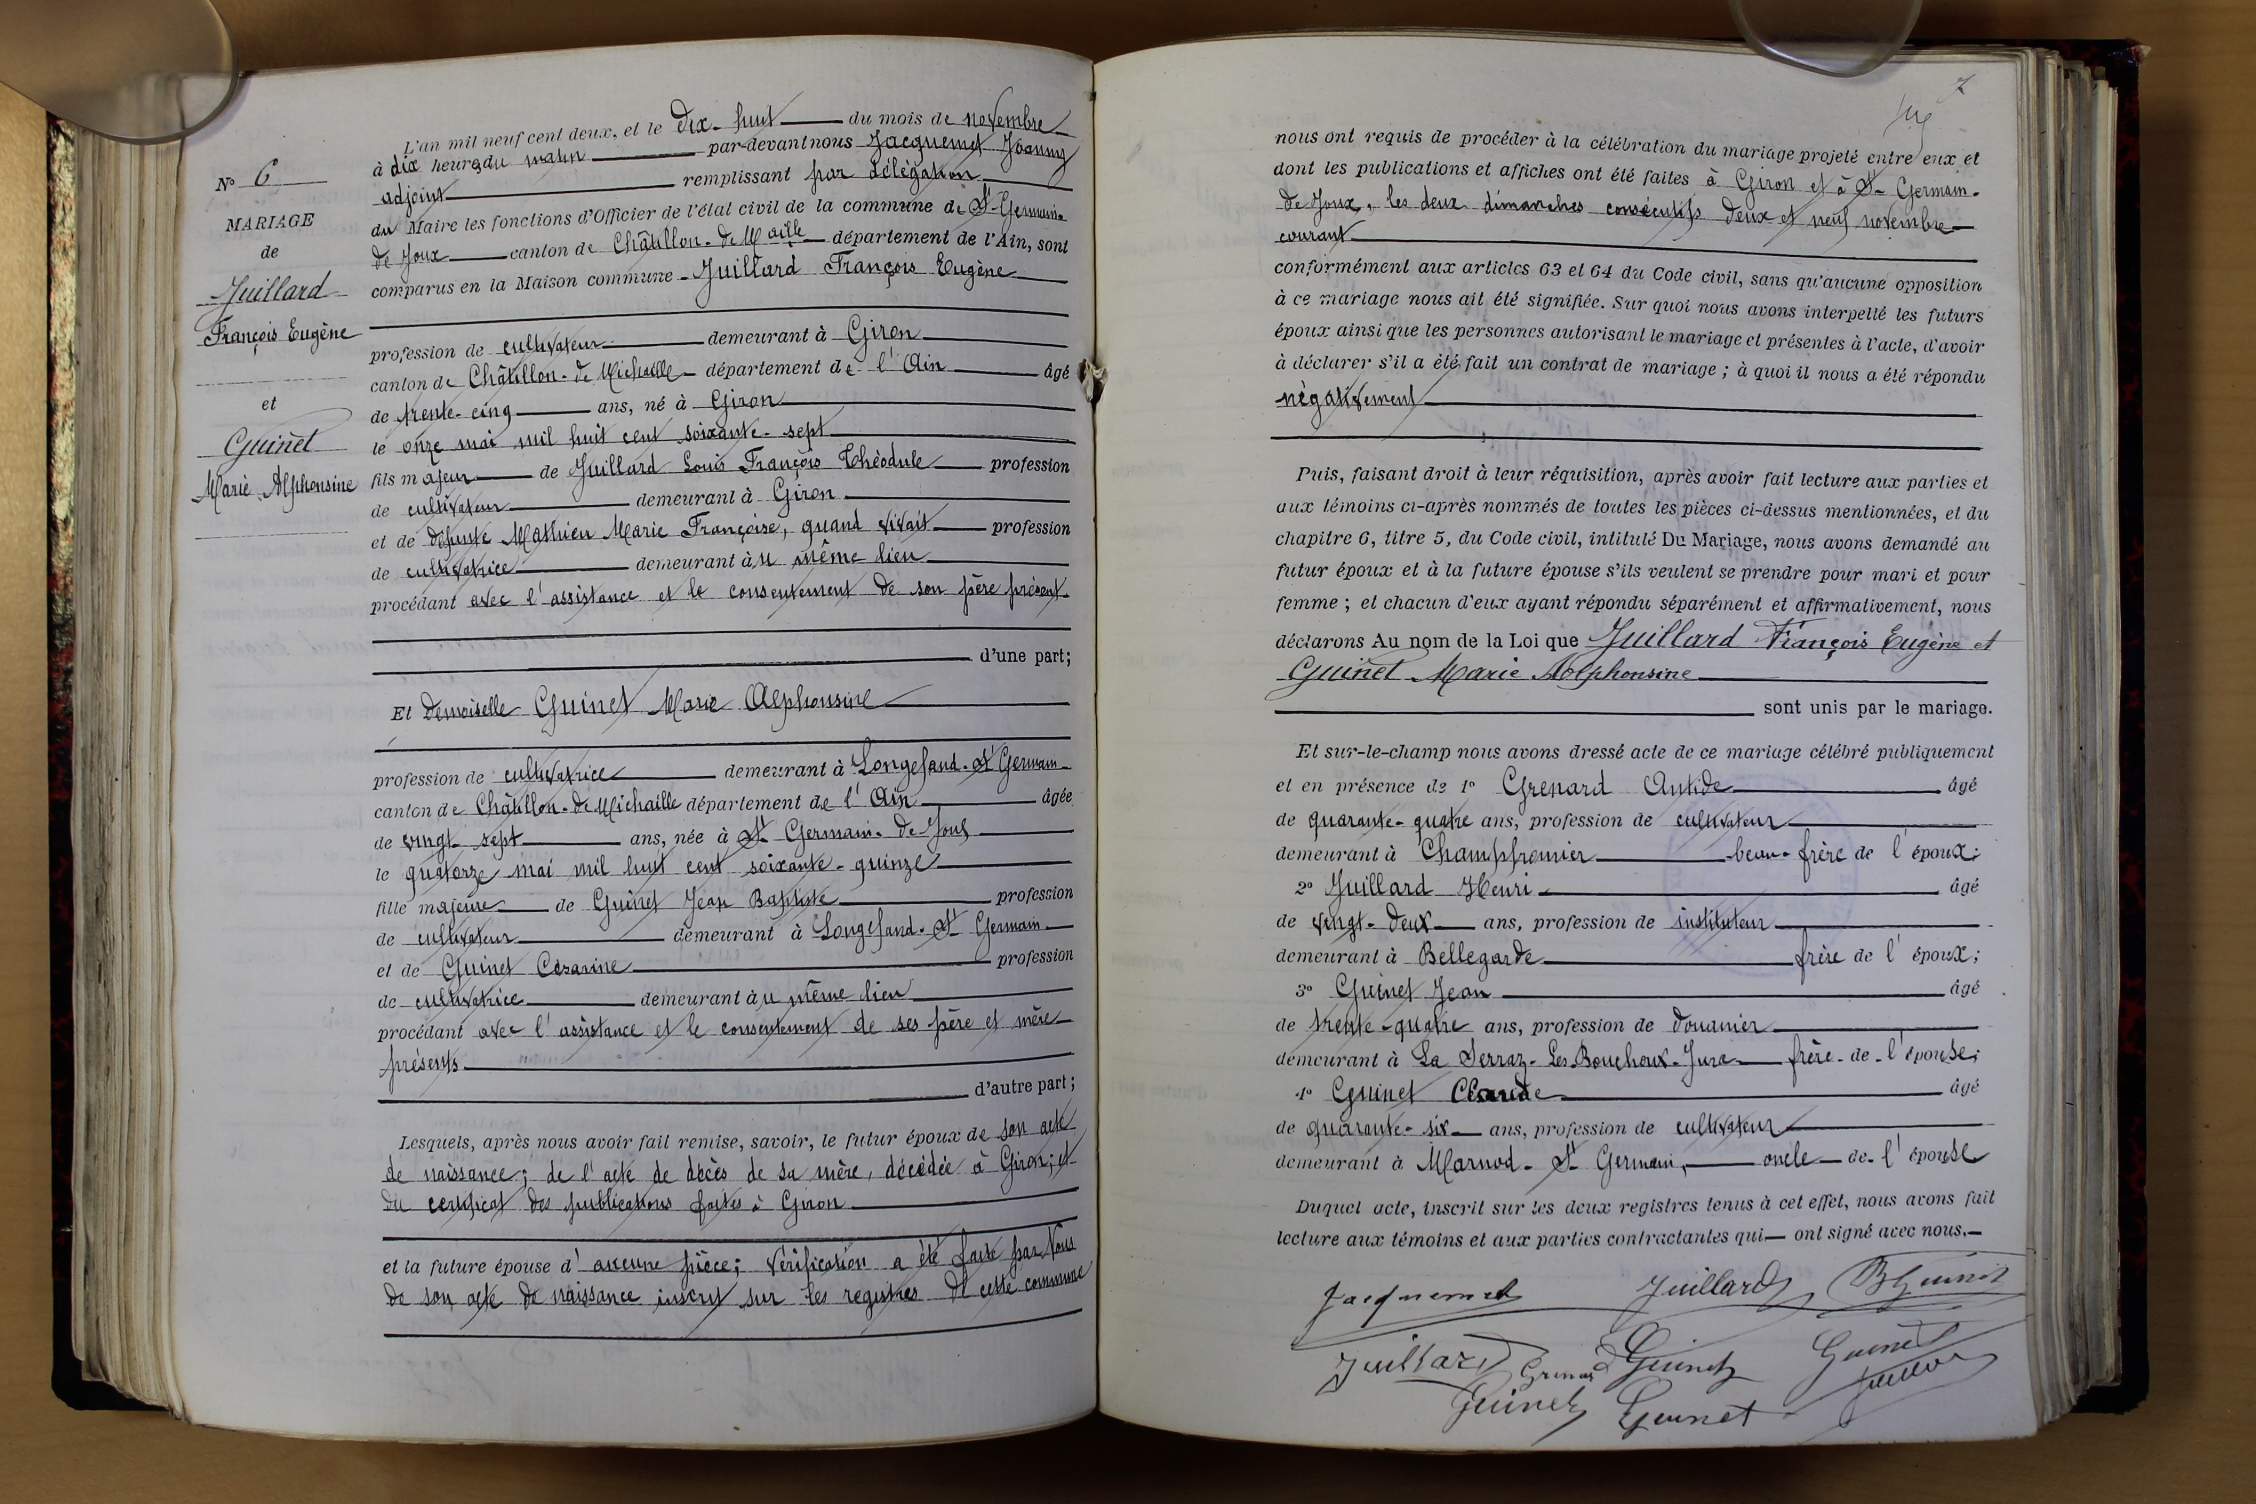 N° 6
MARIAGE
de
Juillard
François Eugène
et
Guinet
Marie Alphonsine
L'an mil neuf cent deux, et le dix-huit du mois de novembre
à dix heures du matin par-devant nous Jacquemet Joanny
adjoint remplissant par délégation
du Maire les fonctions d'Officier de l'état civil de la commune de St-Germain-
de Joux canton de Châtillon-de-Maille département de l'Ain, sont
comparus en la Maison commune Juillard François Eugène
profession de cultivateur demeurant à Giron
canton de Châtillon-de-Michaille département de l'Ain âgé
de trente-cinq ans, né à Giron
le onze mai mil huit cent soixante-sept
fils majeur de Juillard Louis François Théodule profession
de cultivateur demeurant à Giron
et de défunte Mathieu Marie Françoise, quand vivait profession
de cultivatrice demeurant àu même lieu
procédant avec l'assistance et le consentement de son père présent
d'une part;
Et Demoiselle Guinet Marie Alphonsine
profession de cultivatrice demeurant à Longefand-St Germain
canton de Châtillon-de-Michaille département de l'Ain âgée
de vingt-sept ans, née à St Germain-de-Joux
le quatorze mai mil huit cent soixante-quinze
fille majeure de Guinet Jean Baptiste profession
de cultivateur demeurant à Longefand-St Germain
et de Guinet Césarine profession
de cultivatrice demeurant àu même lieu
procédant avec l'assistance et le consentement de ses père et mère
présents
d'autre part;
Lesquels, après nous avoir fait remise, savoir, le futur époux de son acte
de naissance; de l'acte de décès de sa mère, décédée à Giron; et
du certificat des publications faites à Giron
et la future épouse d'aucune pièce; vérification a été faite par nous
de son acte de naissance inscrit sur les registres de cette commune
7
nous ont requis de procéder à la célébration du mariage projeté entre eux et
dont les publications et affiches ont été faites à Giron et à St-Germain-
de-Joux, les deux dimanches consécutifs deux et neuf novembre
courant
conformément aux articles 63 et 64 du Code civil, sans qu'aucune opposition
à ce mariage nous ait été signifiée. Sur quoi nous avons interpellé les futurs
époux ainsi que les personnes autorisant le mariage et présentes à l'acte, d'avoir
à déclarer s'il a été fait un contrat de mariage; à quoi il nous a été répondu
négativement
Puis, faisant droit à leur réquisition, après avoir fait lecture aux parties et
aux témoins ci-après nommés de toutes les pièces ci-dessus mentionnées, et du
chapitre 6, titre 5, du Code civil, intitulé Du Mariage, nous avons demandé au
futur époux et à la future épouse s'ils veulent se prendre pour mari et pour
femme; et chacun d'eux ayant répondu séparément et affirmativement, nous
déclarons Au nom de la Loi que Juillard François Eugène et
Guinet Marie Alphonsine
sont unis par le mariage.
Et sur-le-champ nous avons dressé acte de ce mariage célébré publiquement
et en présence de 1° Grenard Antide âgé
de quarante-quatre ans, profession de cultivateur
demeurant à Champfromier beau-frère de l'époux;
2° Juillard Henri âgé
de vingt-deux ans, profession de instituteur
demeurant à Bellegarde frère de l'époux;
3° Guinet Jean âgé
de trente-quatre ans, profession de douanier
demeurant à La Serraz-Les-Bouchoux-Jura frère de l'épouse;
4° Guinet Claude âgé
de quarante-six ans, profession de cultivateur
demeurant à Marnod-St Germain, oncle de l'épouse
Duquel acte, inscrit sur les deux registres tenus à cet effet, nous avons fait
lecture aux témoins et aux parties contractantes qui ont signé avec nous.
Jacquemet Juillard B Guinet
Juillard Grenard Guinet Guinet
Guinet Guinet